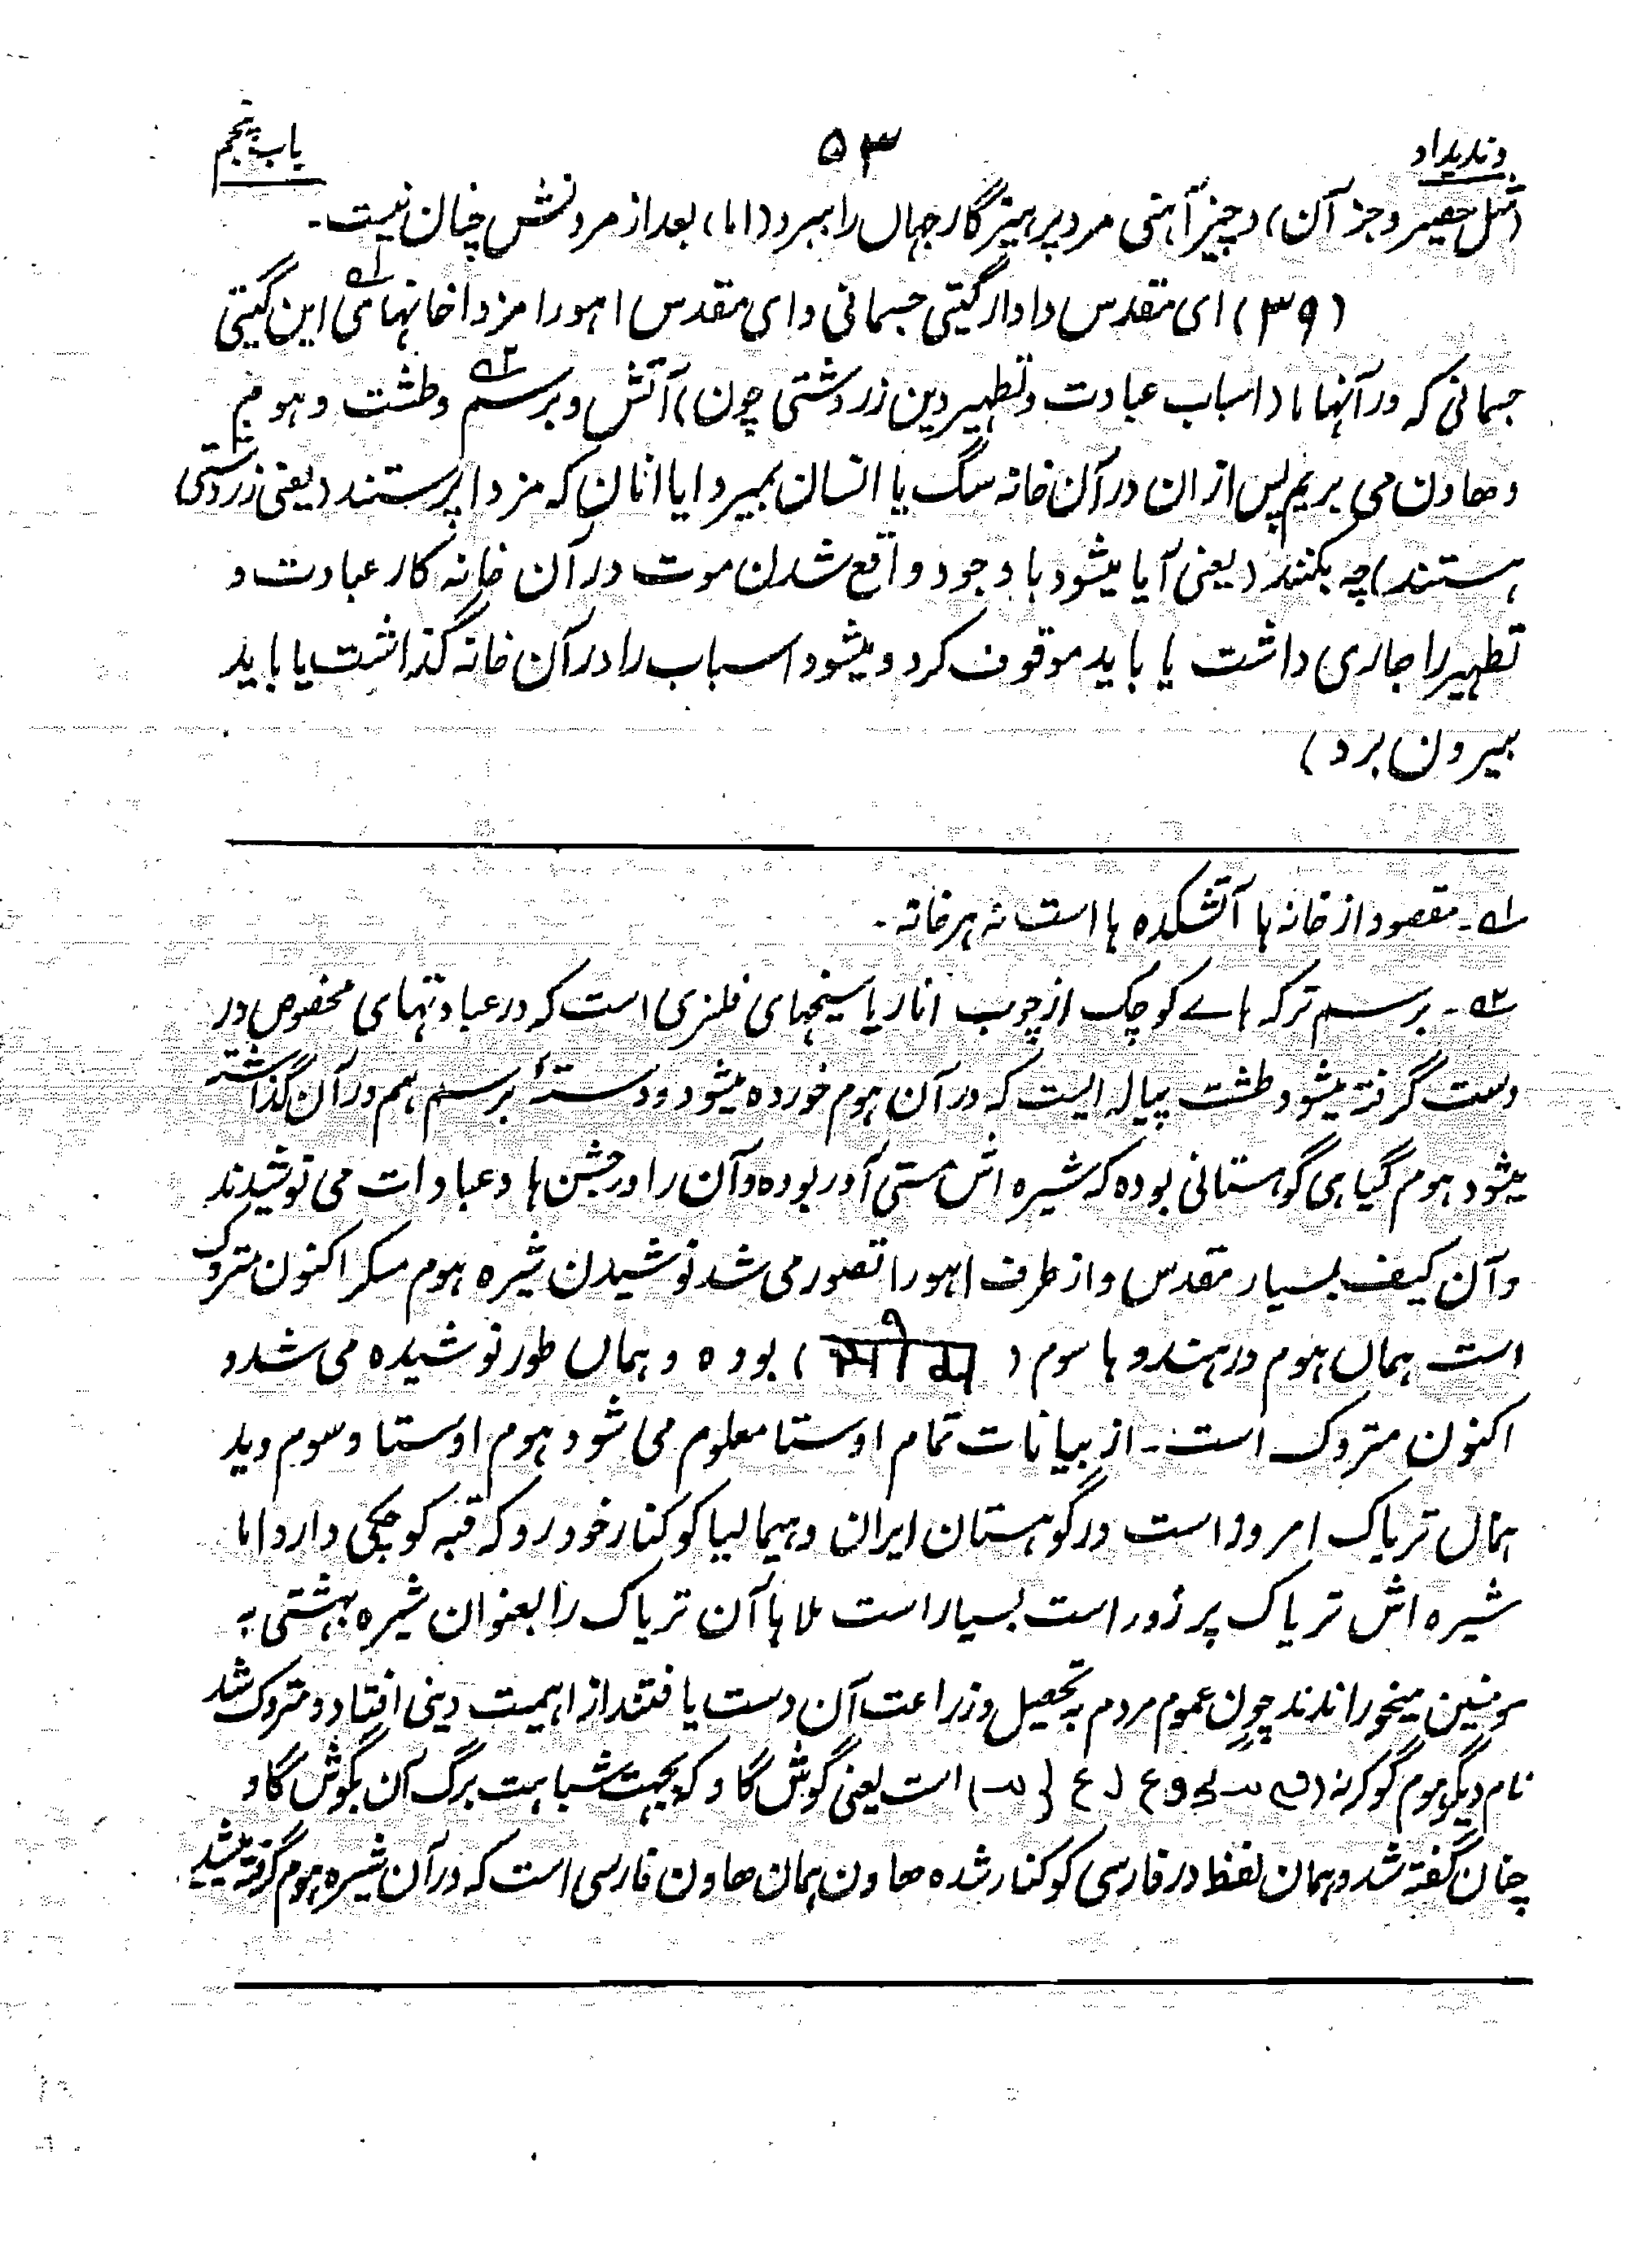 وندیداد ۵۳ باب پنجم
(مثل حصیر و جز آن) و چیز آهنی مرد پرهیزگار جهاں را ببرد (اما) بعد از مردنش چنان نیست۔
(۳۹) ای مقدس دادار گیتی جسمانی و ای مقدس اهورا مزدا خانهای۱ این گیتی
جسمانی که در آنها ما (اسباب عبادت و تطهیر دین زردشتی چون) آتش و برسم۲ و طشت و هوم
و هاون می بریم پس از ان در آن خانه سگ یا انسان بمیرد ایا انان که مزدا پرستند (یعنی زردشتی
هستند) چه بکنند (یعنی آیا میشود با وجود واقع شدن موت در آن خانه کار عبادت و
تطهیر را جاری داشت یا باید موقوف کرد و میشود اسباب را در آن خانه گذاشت یا باید
بیرون برد)
۱۔ مقصود از خانه ها آتشکده ها است نه هر خانه ۔
۲۔ برسم ترکه هاے کوچک از چوب انار یا سیخهای فلزی است که در عبادتهای مخصوص در
دست گرفته میشود طشت پیاله ایست که در آن هوم خورده میشود و دستهٔ برسم هم در آن گذاشته
میشود هوم گیاهی گوهستانی بوده که شیره اش مستی آور بوده و آن را در جشن ها و عبادات می نوشیدند
و آن کیف بسیار مقدس و از طرف اهورا تصور می شد نوشیدن شیره هوم مسکر اکنون متروک
است هماں هوم در هندوها سوم (सोम) بوده و هماں طور نوشیده می شد و
اکنون متروک است۔ از بیانات تمام اوستا معلوم می شود هوم اوستا و سوم وید
همان تریاک امروز است در گوهستان ایران و هیمالیا کوکنار خودرو که قبه کوچکی دارد اما
شیره اش تریاک پر زور است بسیار است ملاها آن تریاک را بعنوان شیره بهشتی به
مومنین میخوراندند چون عموم مردم به تحصیل و زراعت آن دست یافتند از اهمیت دینی افتاد و متروک شد
نام دیگر هوم گوکرنه () است یعنی گوش گاو که بجهت شباهت برگ آن بگوش گاو
چنان گفته شد و همان لفظ در فارسی کوکنار شده هاون همان هاون فارسی است که در آن شیره هوم گرفته میشد